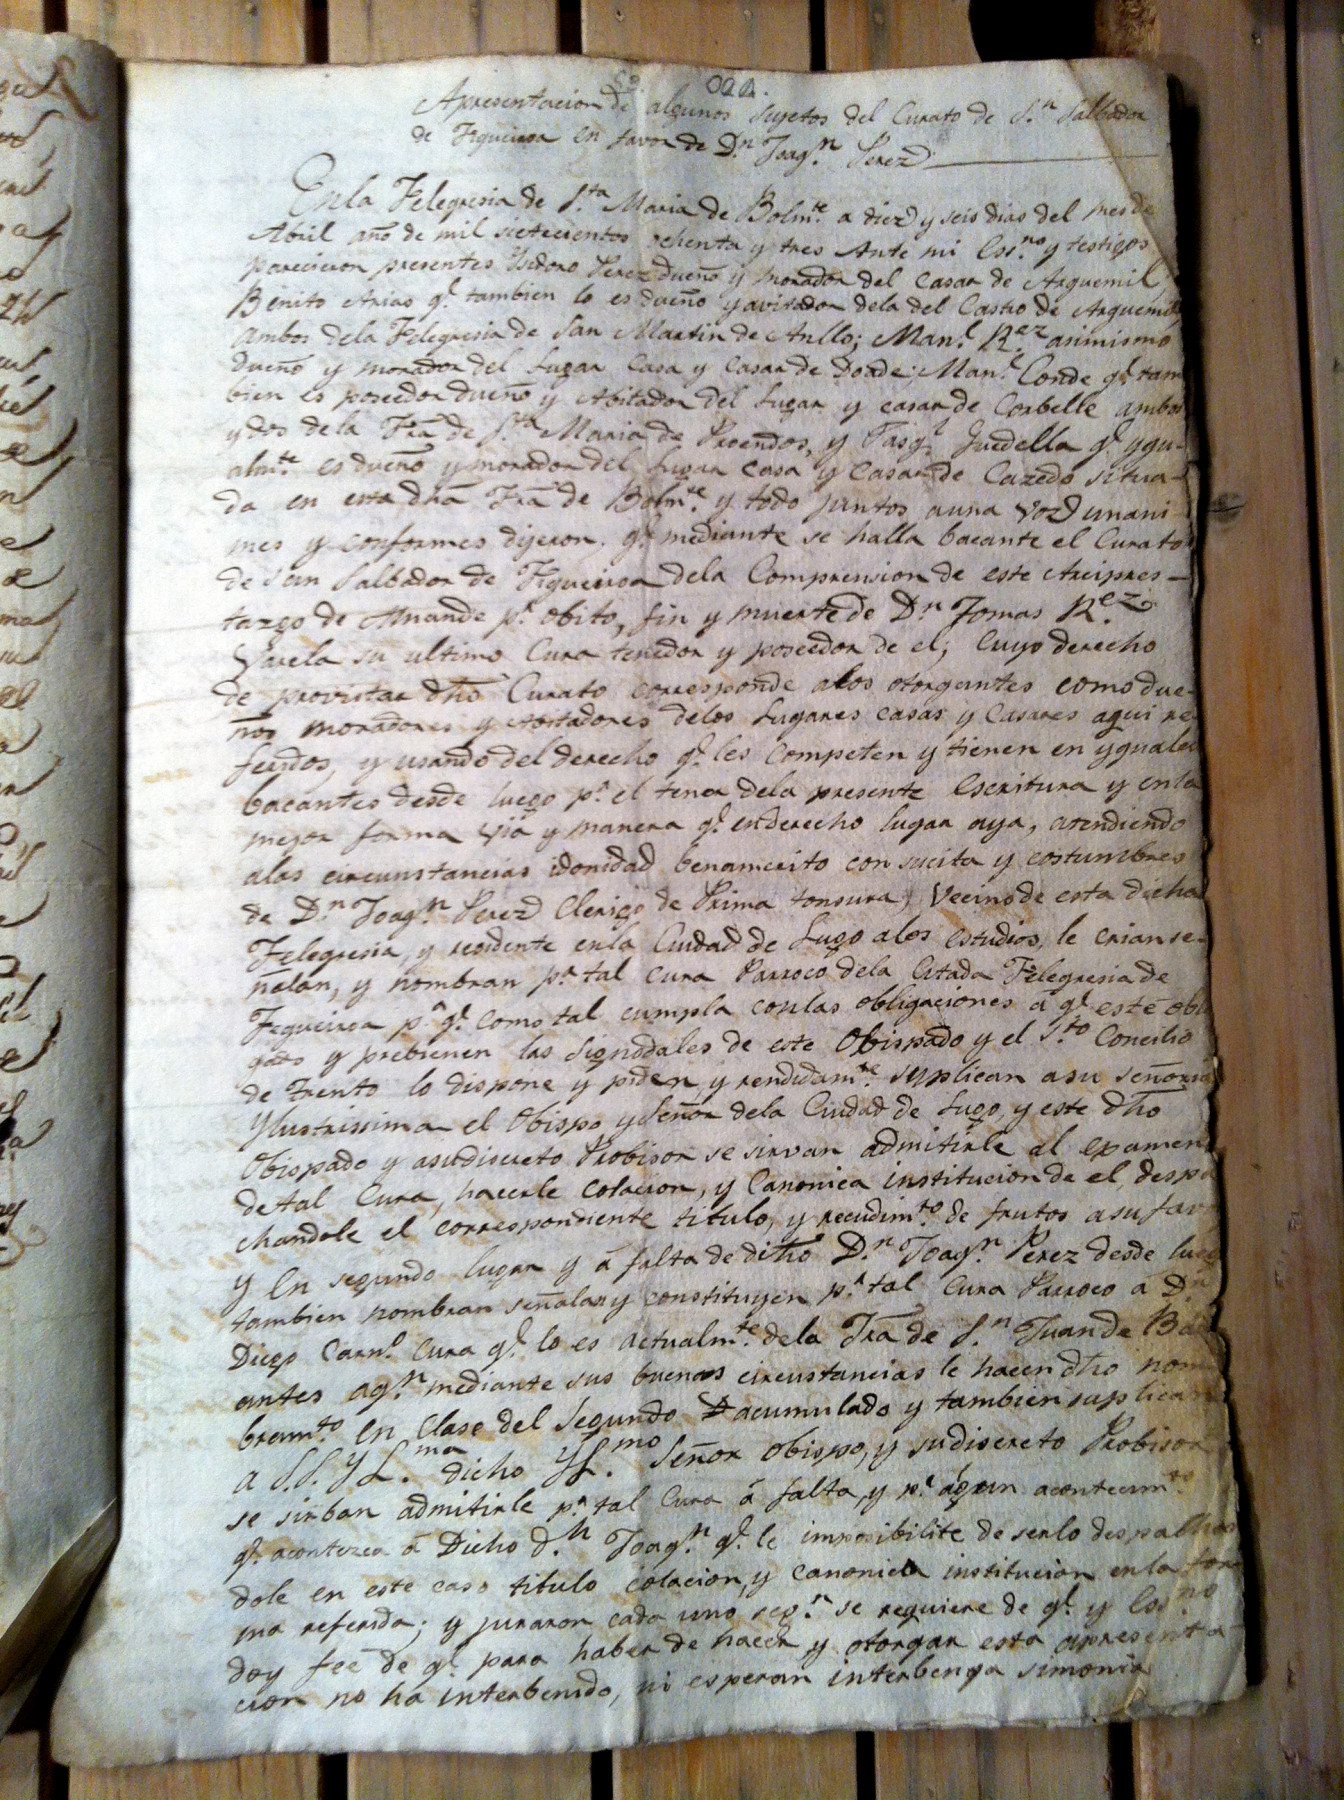 Apresentacion de algunos sujetos del Curato de S.n Salbador
de Figueiroa en favor de D.n Joaq.n Perez
En la Felegresia de S.ta Maria de Bolm.te a diez y seis dias del mes de
Abril año de mil sietecientos ochenta y tres Ante mi Ess.no y testigos
parecieron presentes Ysidoro Perez dueño y morador del Casar de Arguemil,
Benito Arias q.e tambien lo es dueño y avitador dela del Castro de Arguemil
ambos dela Felegresia de San Martin de Anllo; Man.l R.ez asimismo
dueño y morador del Lugar Casa y Casar de Donde; Man.l Conde q.e tam
bien es poseedor dueño y Abitador del Lugar y casar de Corbelle ambos
y dos de la Fra de S.ta Maria de Proendos, y Pasq.l Guedella q.e ygu-
alm.te es dueño y morador del Lugar Casa y Casar de Cazedo situa-
da en esta dha Fra de Bolm.te y todo juntos a una voz unani
mes y conformes dijeron, q.e mediante se halla bacante el Curato
de San Salbador de Figueiroa dela Comprension de este Arcipres-
tazgo de Amande p.r obito, fin y muerte de D.n Tomas R.ez
Varela su ultimo Cura tenedor y poseedor de el; Cuyo derecho
de provistar dho Curato corresponde alos otorgantes como due-
ños moradores y Avitadores delos Lugares casas y Casares aqui re-
feridos, y usando del derecho q.e les Competen y tienen en yguales
bacantes desde luego p.r el tenor dela presente Escritura y en la
mejor forma via y manera q.e en derecho lugar aya, atendiendo
alas circunstancias idonidad benamerito con sucita y costumbres
de D.n Joaq.n Perez Clerigo de Prima tonsura, Vecino de esta dicha
Felegresia, y recidente en la Ciudad de Lugo alos estudios, le crian se-
ñalan, y nombran p.r tal Cura Parroco dela Citada Felegresia de
Fegueiroa p.a q.e como tal cumpla con las obligaciones a q.e este obli
gado y prebienen las Signodales de este Obispado y el S.to Concilio
de Trento lo dispone y piden y rendidam.te suplican a su señoria
Ylustrissima el Obispo y Señor dela Ciudad de Lugo, y este dho
Obispado y a su discreto Probisor se sirvan admitirle al examen
de tal Cura, hacerle colacion, y Canonica institucion de el, despa
chandole el correspondiente titulo, y recudim.to de frutos a su fav
y En segundo lugar y á falta de dicho D.n Joaq.n Perez desde luego
tambien nombran señalan y constituyen p.r tal Cura Parroco á D.n
Diego Carn.o Cura q.e lo es actualm.te dela Fra de S.n Juan de
antes aq.n mediante sus buenas circustancias le hacen dho nom
bram.to en Clase del Segundo acumulado y tambien suplican
a S.S. Y L.ma dicho YL.mo Señor Obispo, y su discreto Probisor
se sirban admitirle p.r tal Cura á falta, y p.r algun acontecim.to
q.e acontezca á Dicho d.n Joaq.n q.e le imposibilite de serlo despachan
dole en este caso titulo colacion, y canonica institucion en la for
ma referida; y juraron cada uno seg.n se requiere de q.e yo Ess.no
doy feé de q.e para haber de hacer y otorgar esta apresenta
cion no ha interbenido, ni esperan interbenga simonia